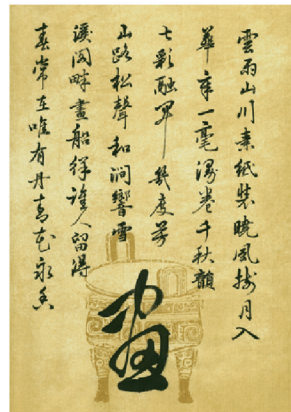 雲雨山川素紙裝曉風拂月入
華章一毫漫卷千秋韻
七彩融幾度芳
山路松聲和澗響雪
溪畔畫船徉誰人留得
春常在唯有丹青花永香
畫